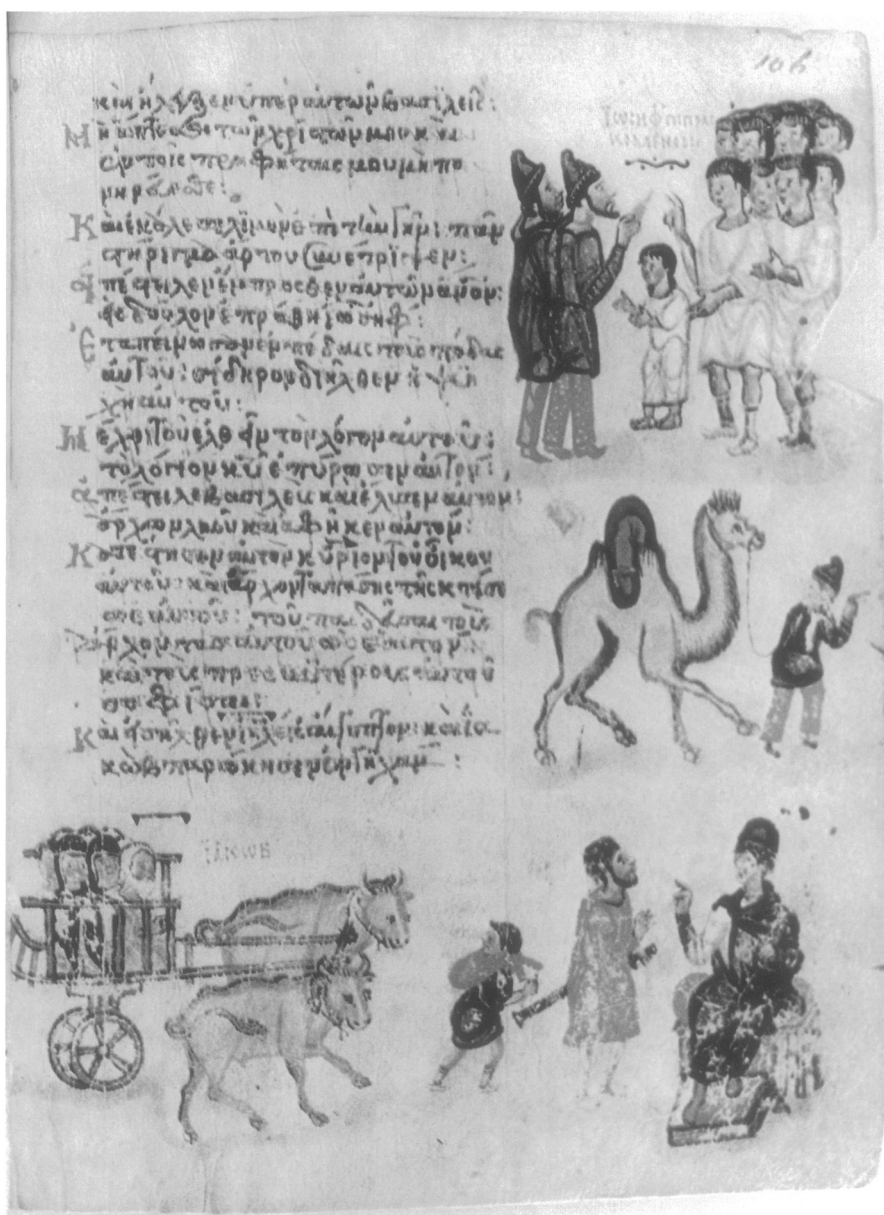 106
καὶ ἤλεγξεν ὑπὲρ αὐτῶν βασιλεῖς:
Μὴ ἅπτεσθε τῶν χριστῶν μου καὶ
ἐν τοῖς προφήταις μου μὴ πο
νηρεύεσθε:
Καὶ ἐκάλεσεν λιμὸν ἐπὶ τὴν γῆν: πᾶν
στήριγμα ἄρτου συνέτριψεν:
ἀπέστειλεν ἔμπροσθεν αὐτῶν ἄνον:
εἰς δοῦλον ἐπράθη ἰωσήφ:
Ἐταπείνωσαν ἐν πέδαις τοὺς πόδας
αὐτοῦ: σίδηρον διῆλθεν ἡ ψυ
χὴ αὐτοῦ:
Μέχρι τοῦ ἐλθεῖν τὸν λόγον αὐτοῦ:
τὸ λόγιον κυ ἐπύρωσεν αὐτόν:
ἀπέστειλεν βασιλεὺς καὶ ἔλυσεν αὐτόν:
ἄρχων λαοῦ καὶ ἀφῆκεν αὐτόν:
Κατέστησεν αὐτὸν κύριον τοῦ οἴκου
αὐτοῦ: καὶ ἄρχοντα πάσης τῆς κτήσε
ως αὐτοῦ: τοῦ παιδεῦσαι τοὺς
ἄρχοντας αὐτοῦ ὡς ἑαυτὸν:
καὶ τοὺς πρεσβυτέρους αὐτοῦ
σοφίσαι:
Καὶ εἰσῆλθεν ιηλ εἰς αἴγυπτον: καὶ ἰα
κὼβ παρώκησεν ἐν γῆ χάμ:
ΙΑΚΩΒ